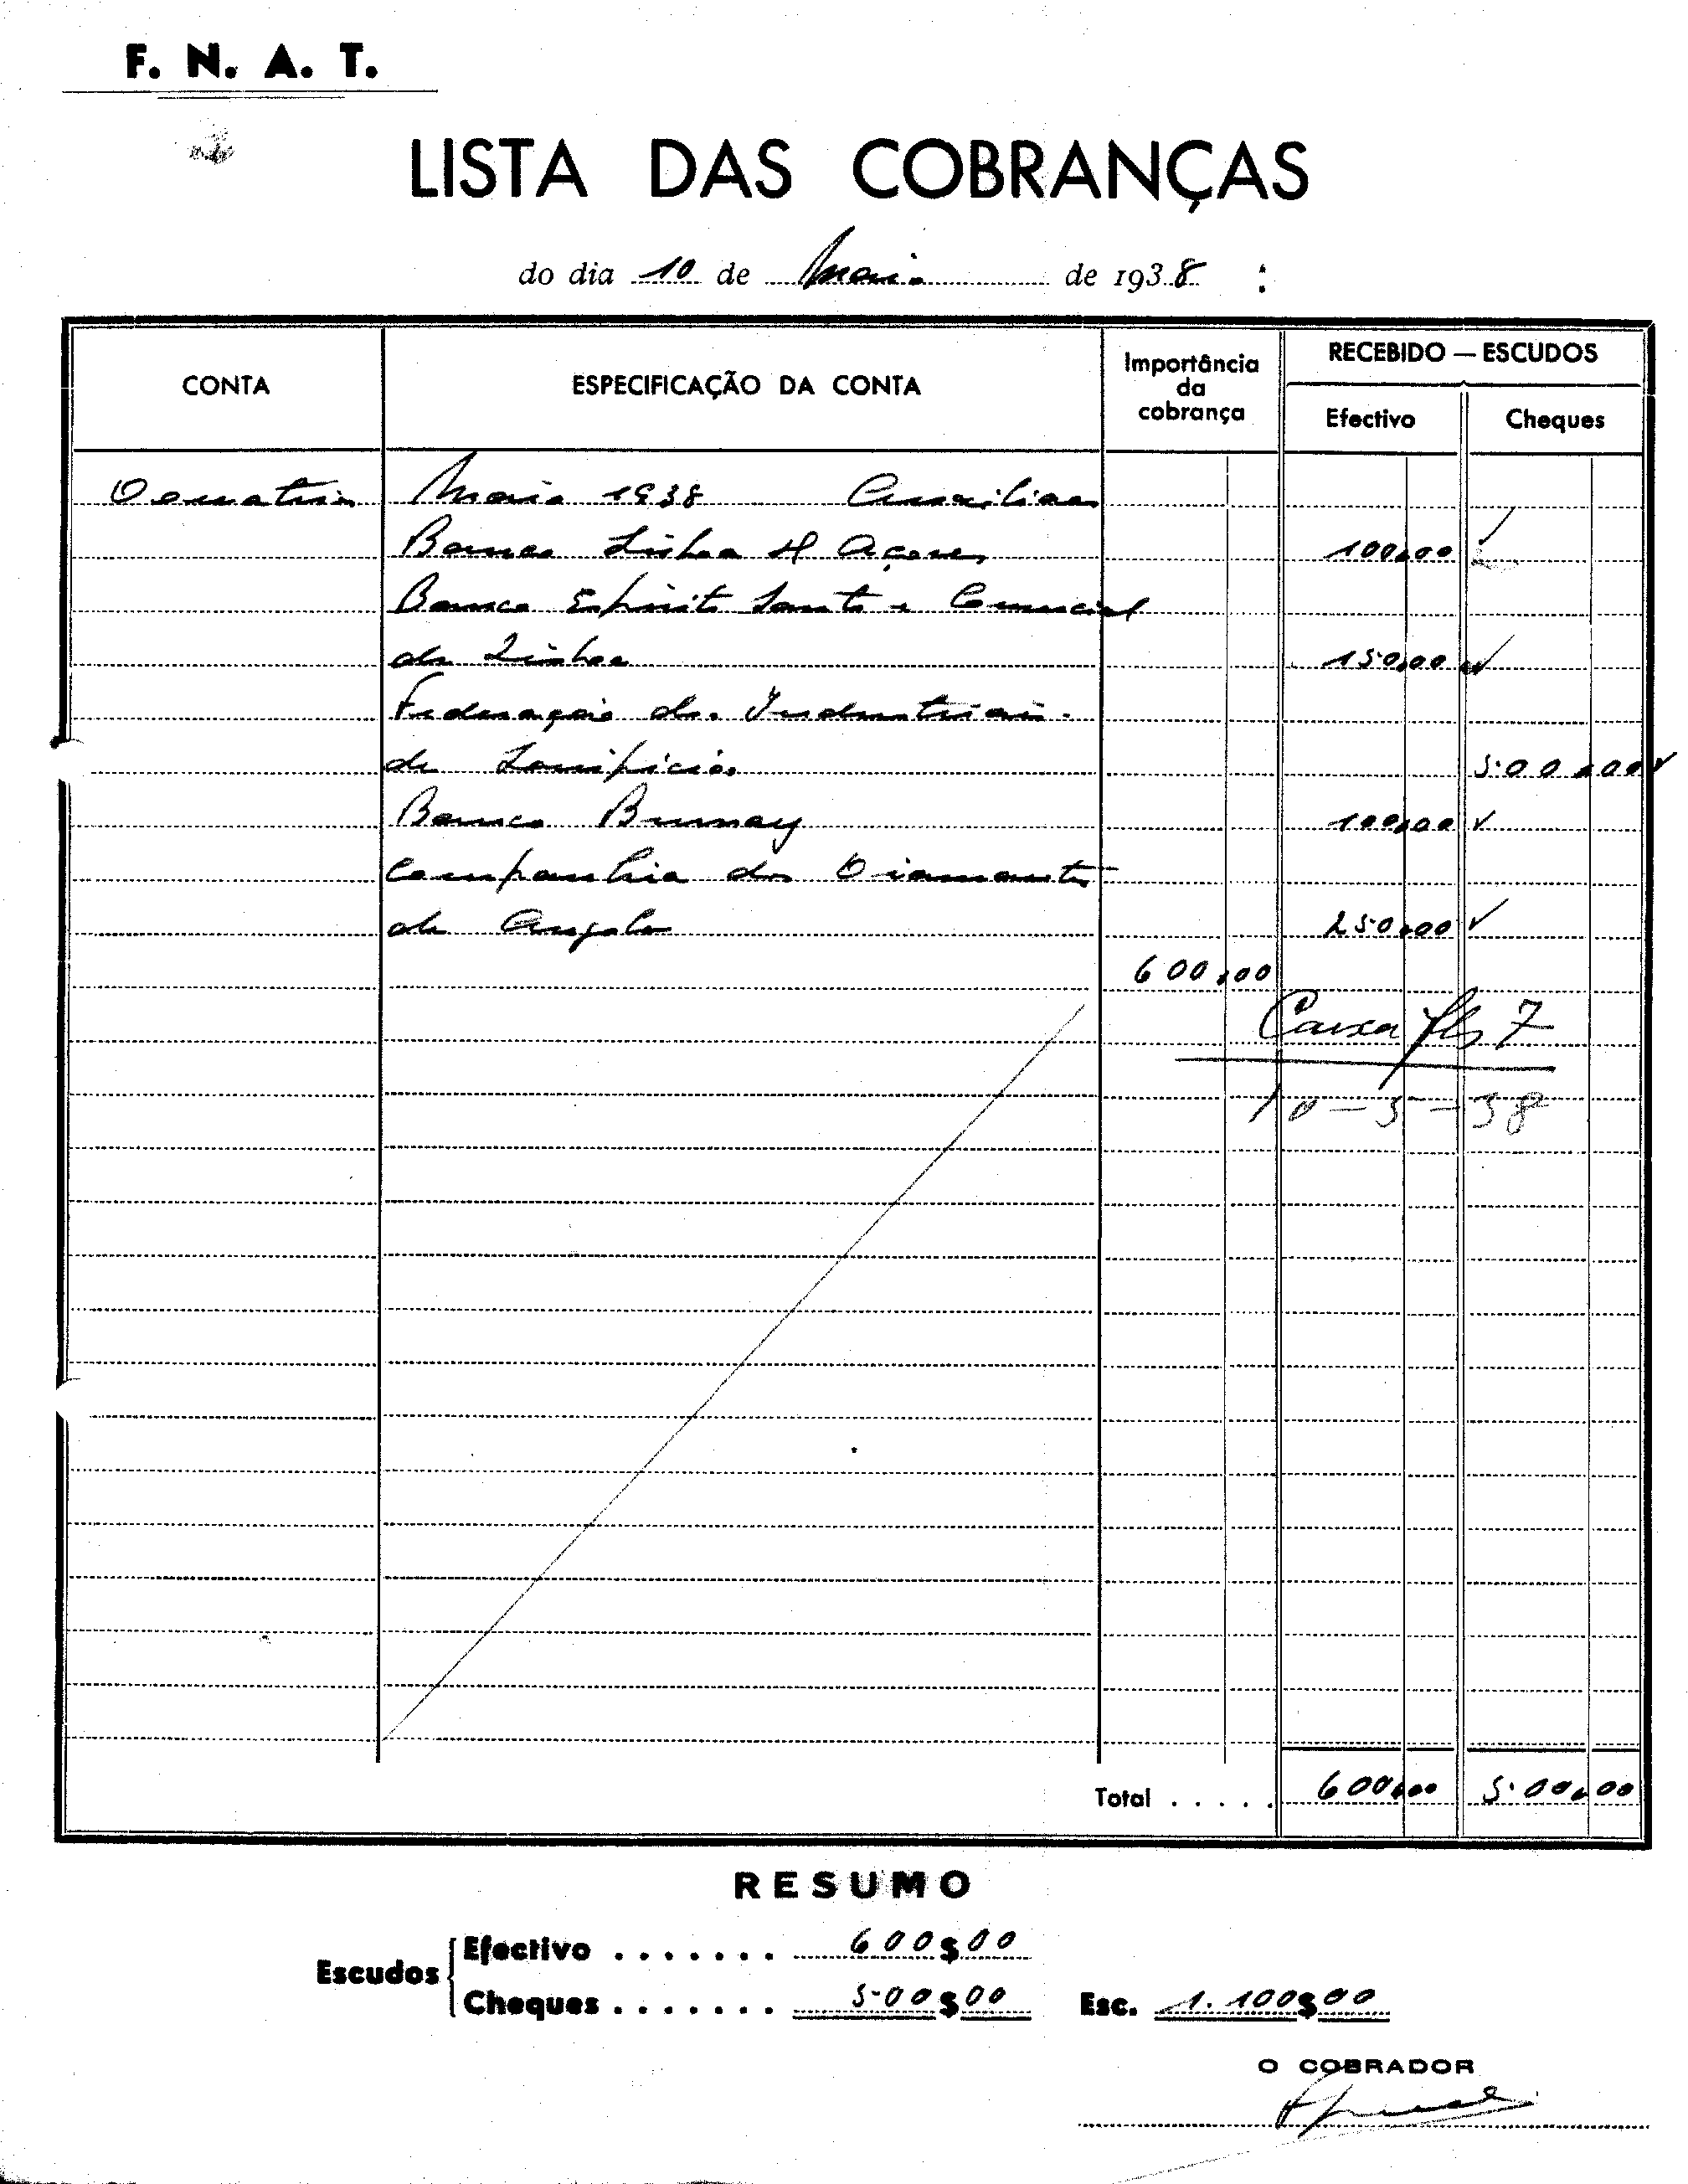 F. N. A. T.
LISTA DAS COBRANÇAS
do dia 10 de Maio de 1938
CONTA
ESPECIFICAÇÃO DA CONTA
Importância
da
cobrança
RECEBIDO — ESCUDOS
Efectivo
Cheques
Maio 1938
Banco Lisboa & Açores 100,00
Banco Espirito Santo e Comercial
de Lisboa 150,00
Federação dos Industriais
de Lanificios 500,00
Banco Burnay 100,00
Companhia dos Diamantes
de Angola 250,00
600,00
Caixa fls 7
10-5-38
Total ..... 600,00 500,00
RESUMO
Escudos
Efectivo ....... 600$00
Cheques ....... 500$00
Esc. 1.100$00
O COBRADOR